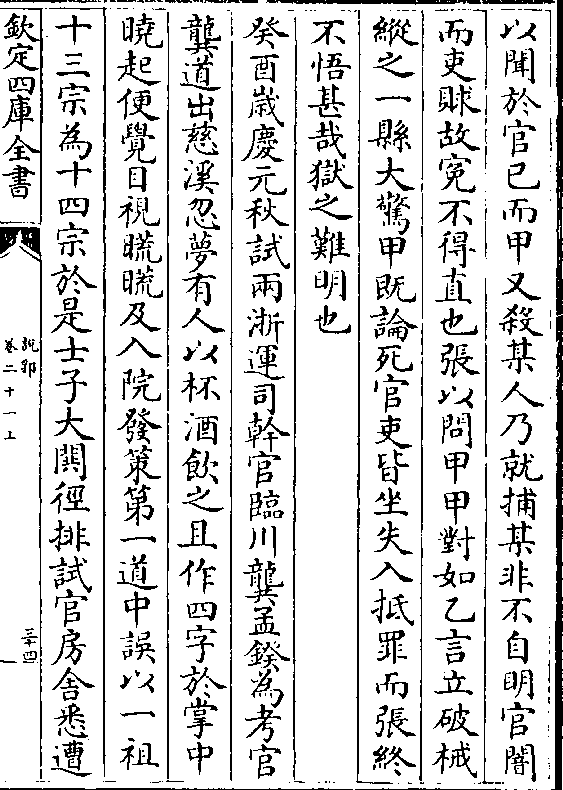 以聞於官已而甲又殺某人乃就捕某非不自明官闇
而吏賕故寃不得直也張以問甲甲對如乙言立破械
縱之一縣大驚甲既論死官吏皆坐失入抵罪而張終
不悟甚哉獄之難明也
癸酉嵗慶元秋試兩浙運司幹官臨川龔孟鍨為考官
龔道出慈溪忽夢有人以杯酒飲之且作四字於掌中
曉起便覺目視䀮䀮及入院發策第一道中誤以一祖
十三宗為十四宗於是士子大閧徑排試官房舍悉遭
欽定四庫全書
說郛
卷二十一上
三十四